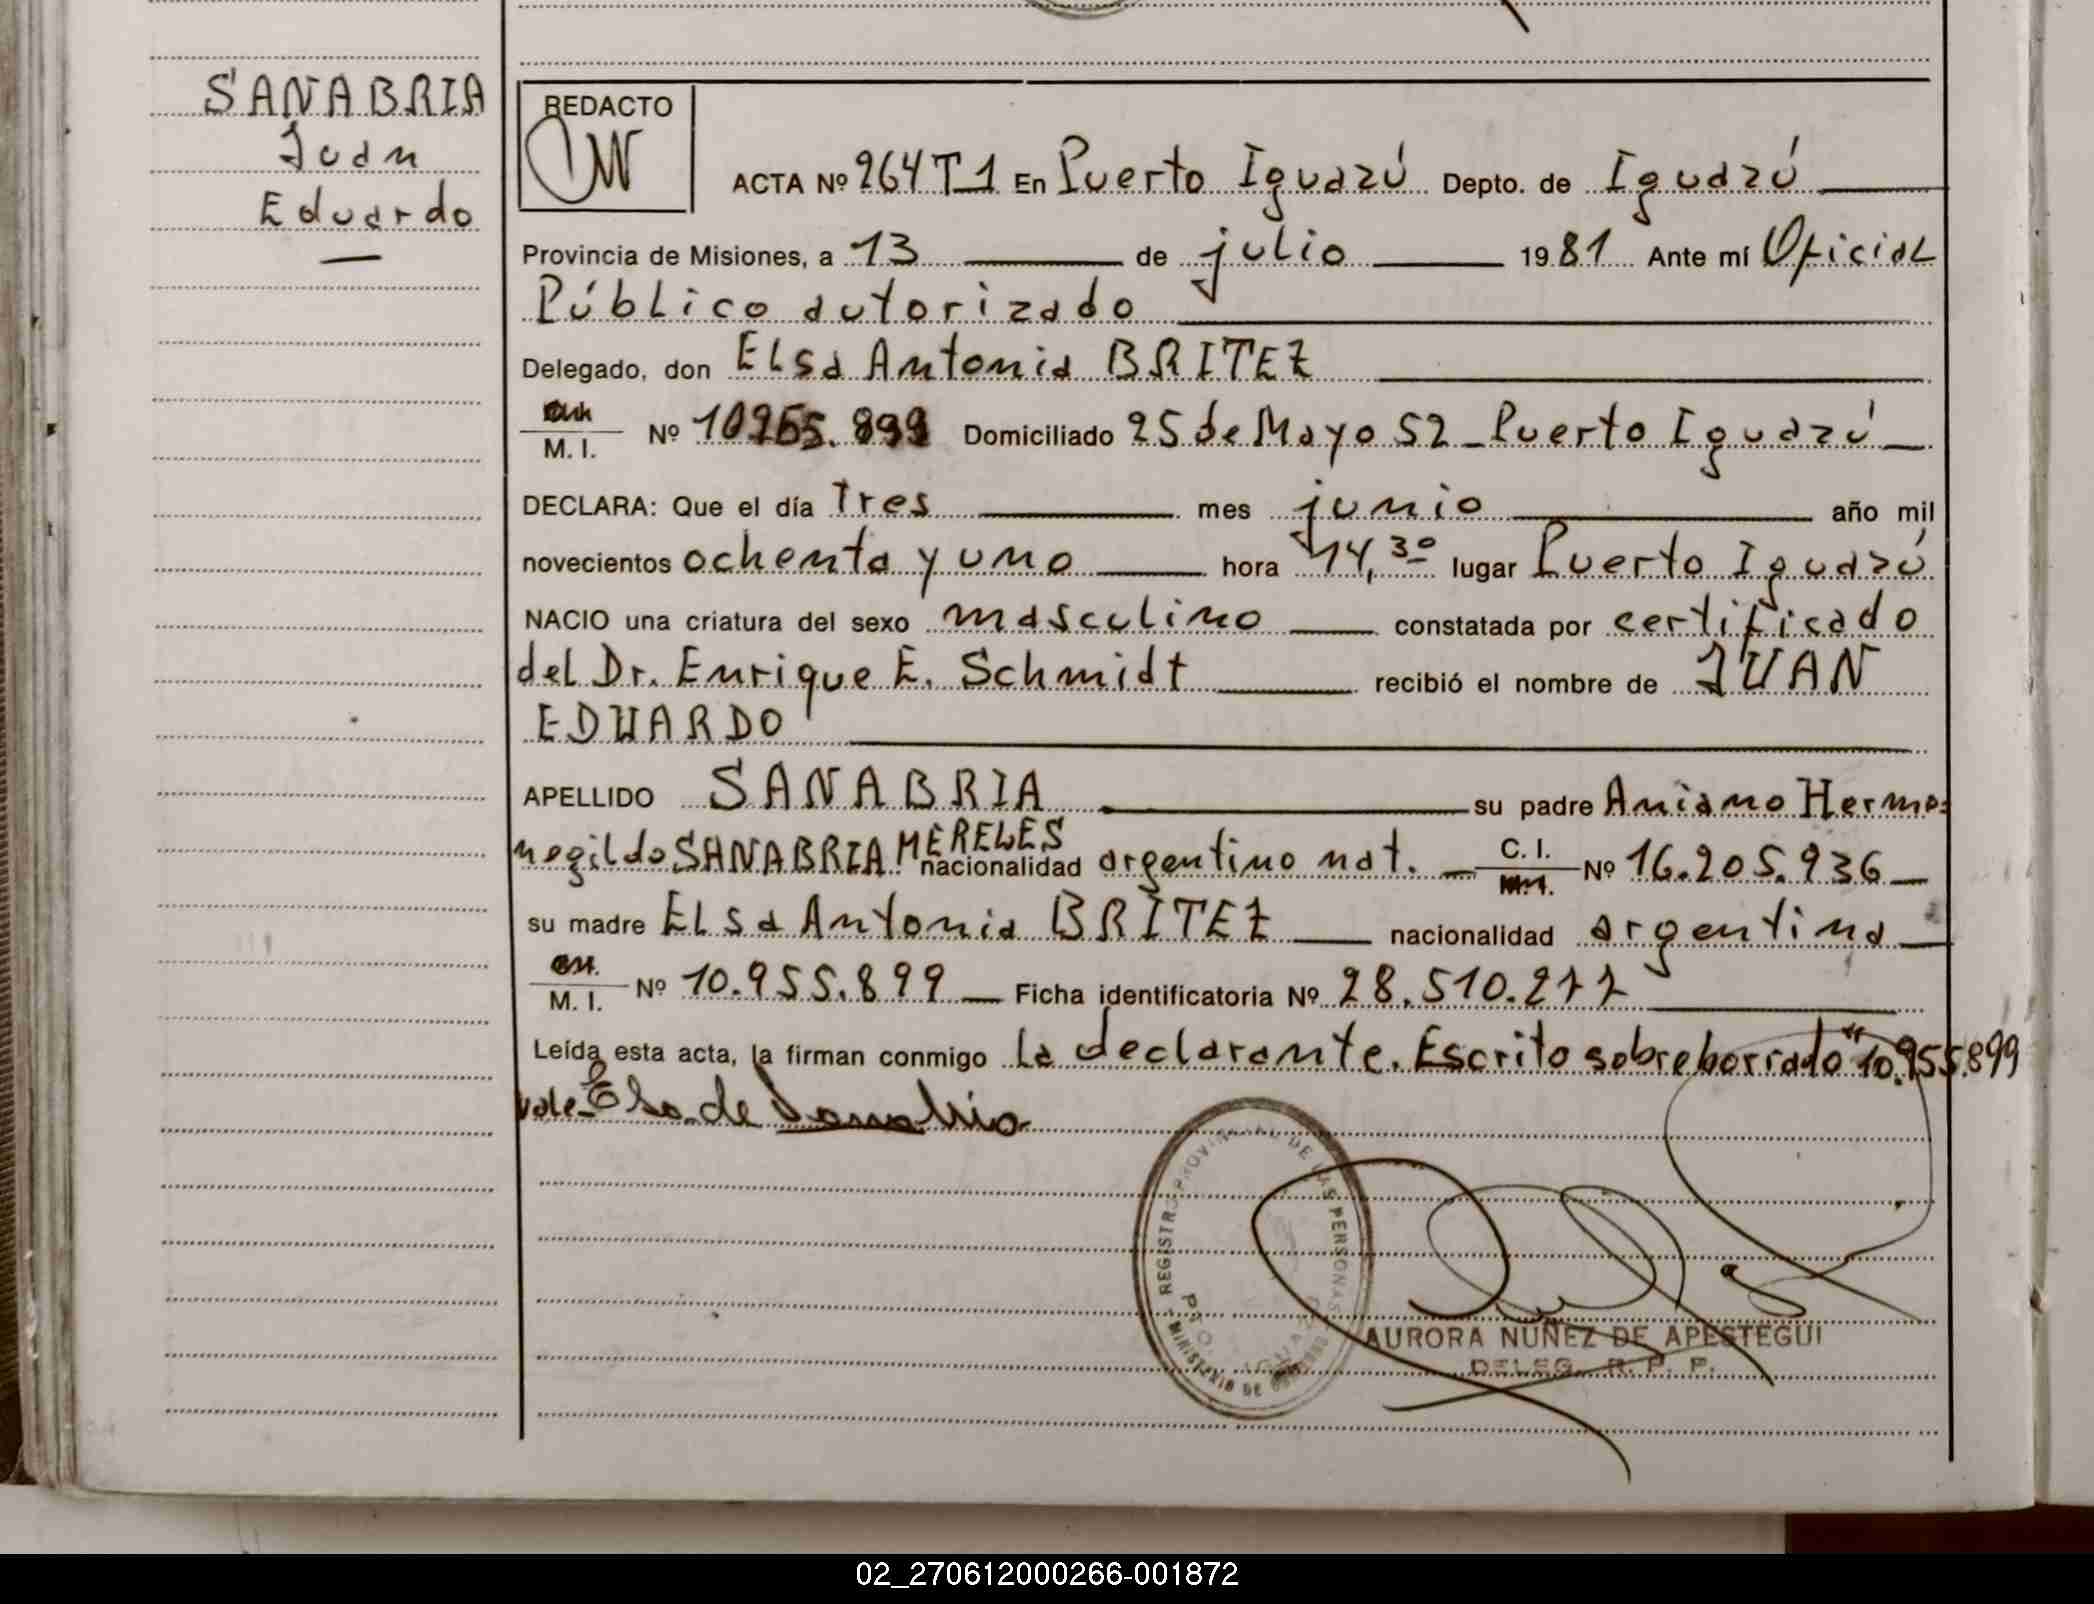 SANABRIA
Juan
Eduardo
REDACTO
ACTA Nº 264 T 1 En Puerto Iguazú Depto. de Iguazú
Provincia de Misiones, a 13 de julio 1981 Ante mí Oficial
Público autorizado
Delegado, don Elsa Antonia BRITEZ
M. I. Nº 10955.899 Domiciliado 25 de Mayo 52 - Puerto Iguazú
DECLARA: Que el día tres mes junio año mil
novecientos ochenta y uno hora 14,30 lugar Puerto Iguazú
NACIO una criatura del sexo masculino constatada por certificado
del Dr. Enrique E. Schmidt recibió el nombre de JUAN
EDUARDO
APELLIDO SANABRIA su padre Aniano Herme=
negildo SANABRIA MERELES nacionalidad argentino nat. C. I. Nº 16.205.936
su madre Elsa Antonia BRITEZ nacionalidad argentina
M. I. Nº 10.955.899 Ficha identificatoria Nº 28.510.277
Leída esta acta, la firman conmigo la declarante. Escrito sobre borrado "10.955.899
vale. Elsa de Sanabria
REGISTRO PROVINCIAL DE LAS PERSONAS
MINISTERIO DE
AURORA NUÑEZ DE APESTEGUI
DELEG. R. P. P.
02_270612000266-001872